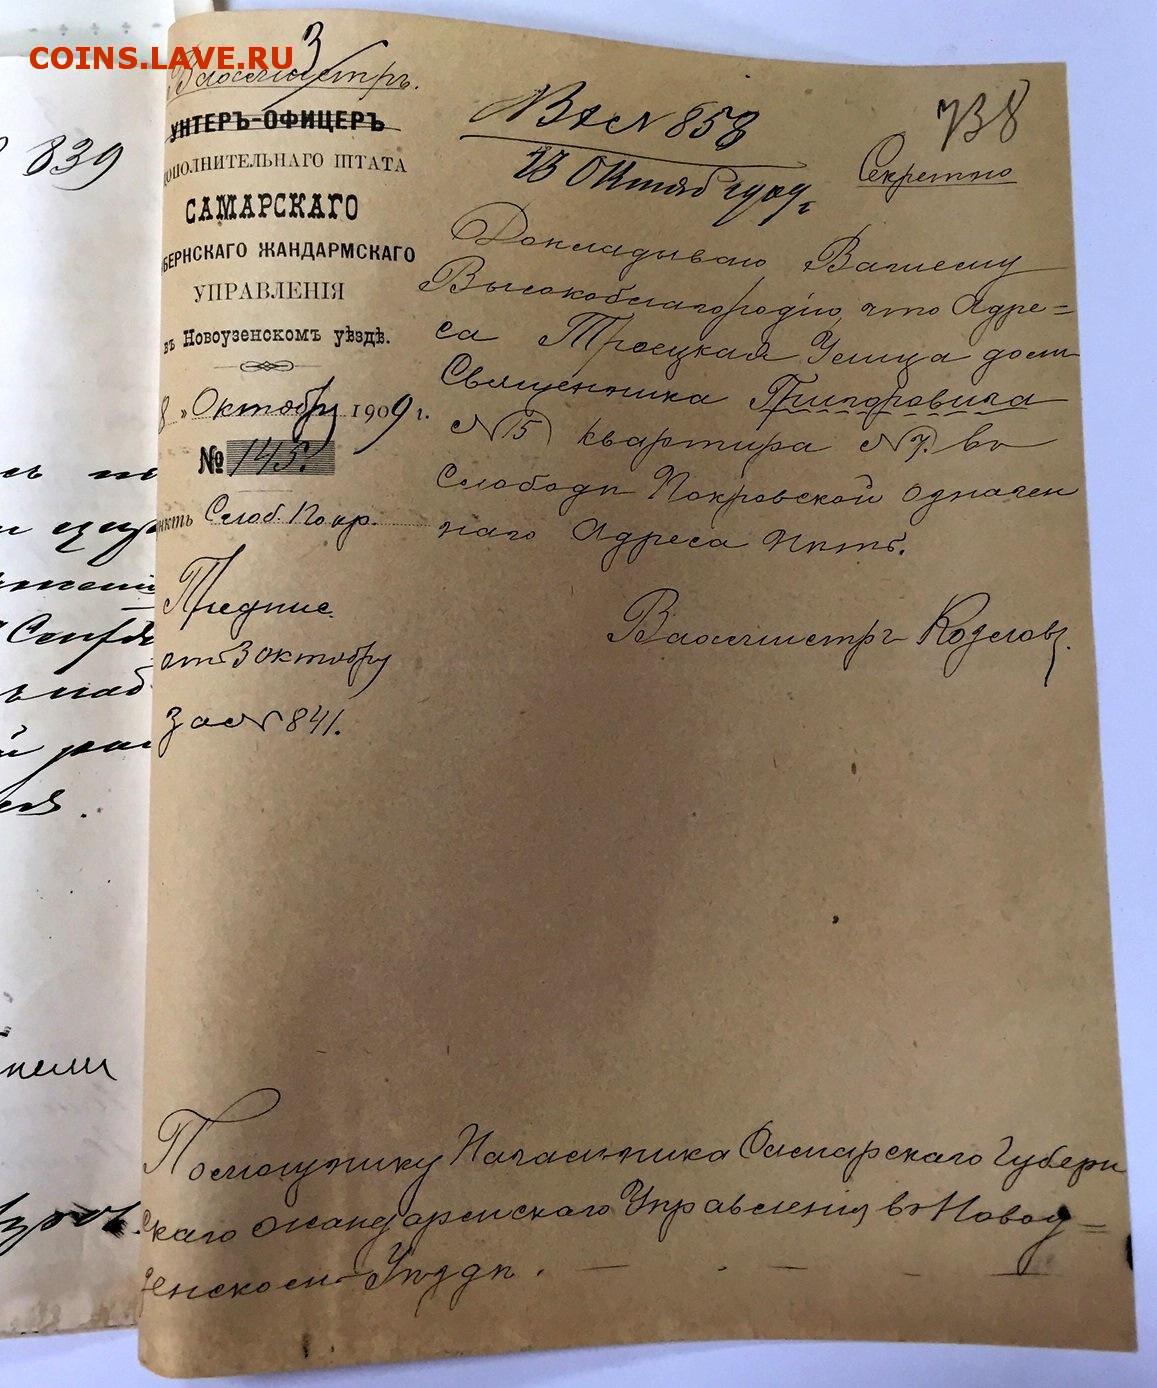 COINS.LAVE.RU
3
Вахмистръ.
УНТЕРЪ-ОФИЦЕРЪ
ДОПОЛНИТЕЛЬНАГО ШТАТА
САМАРСКАГО
БЕРНСКАГО ЖАНДАРМСКАГО
УПРАВЛЕНІЯ
въ Новоузенскомъ уѣздѣ.
8 " Октября 1909 г.
№ 143.
нктъ Слоб. Покр.
Предпис.
отъ 3 октября
за № 841.
Вх № 858
13 Октяб 1909 г
738
Секретно
Докладываю Вашему
Высокоблагородію, что Адре=
са Троецкая Улица домъ
Священника Григоровича
№ 15 квартира № 7. въ
Слободѣ Покровской означен
наго Адреса нѣтъ.
Вахмистръ Козловъ.
Помощнику Начальника Самарскаго Губерн
скаго Жандармскаго Управленія въ Новоу=
зенскомъ Уѣздѣ.
839